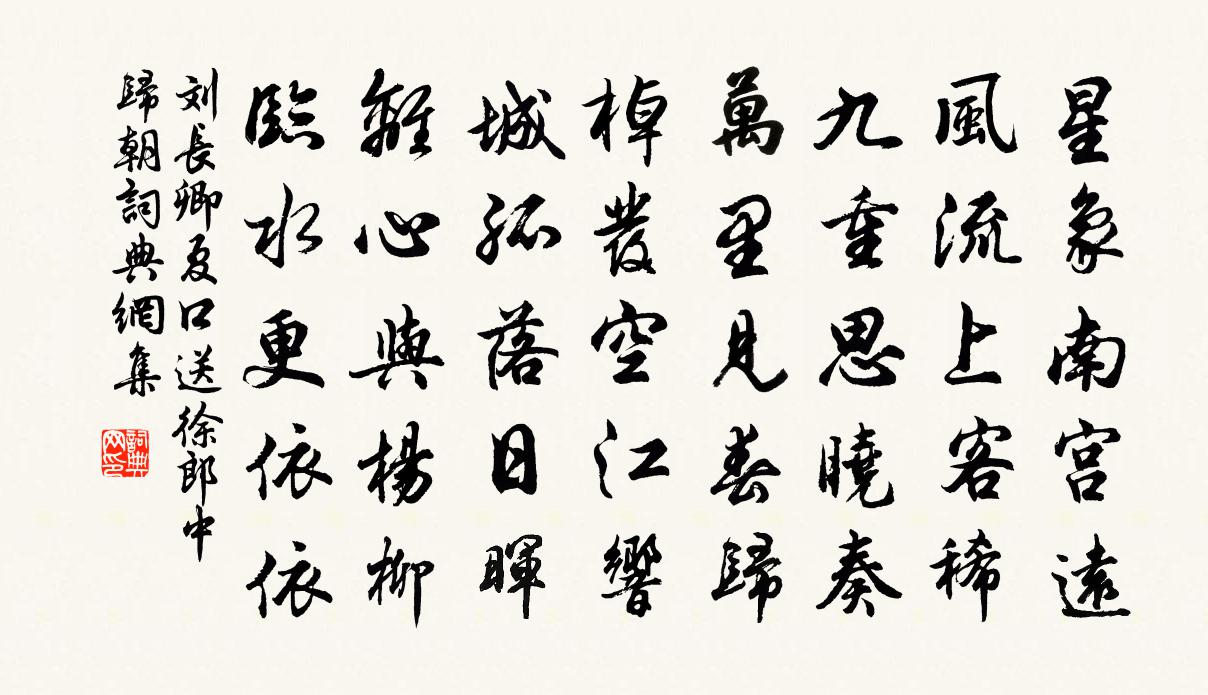 星象南宮遠
風流上客稀
九重思曉奏
萬里見春歸
棹發空江響
城孤落日暉
離心與楊柳
臨水更依依
刘長卿夏口送徐郎中
歸朝詞典網集
詞典网印